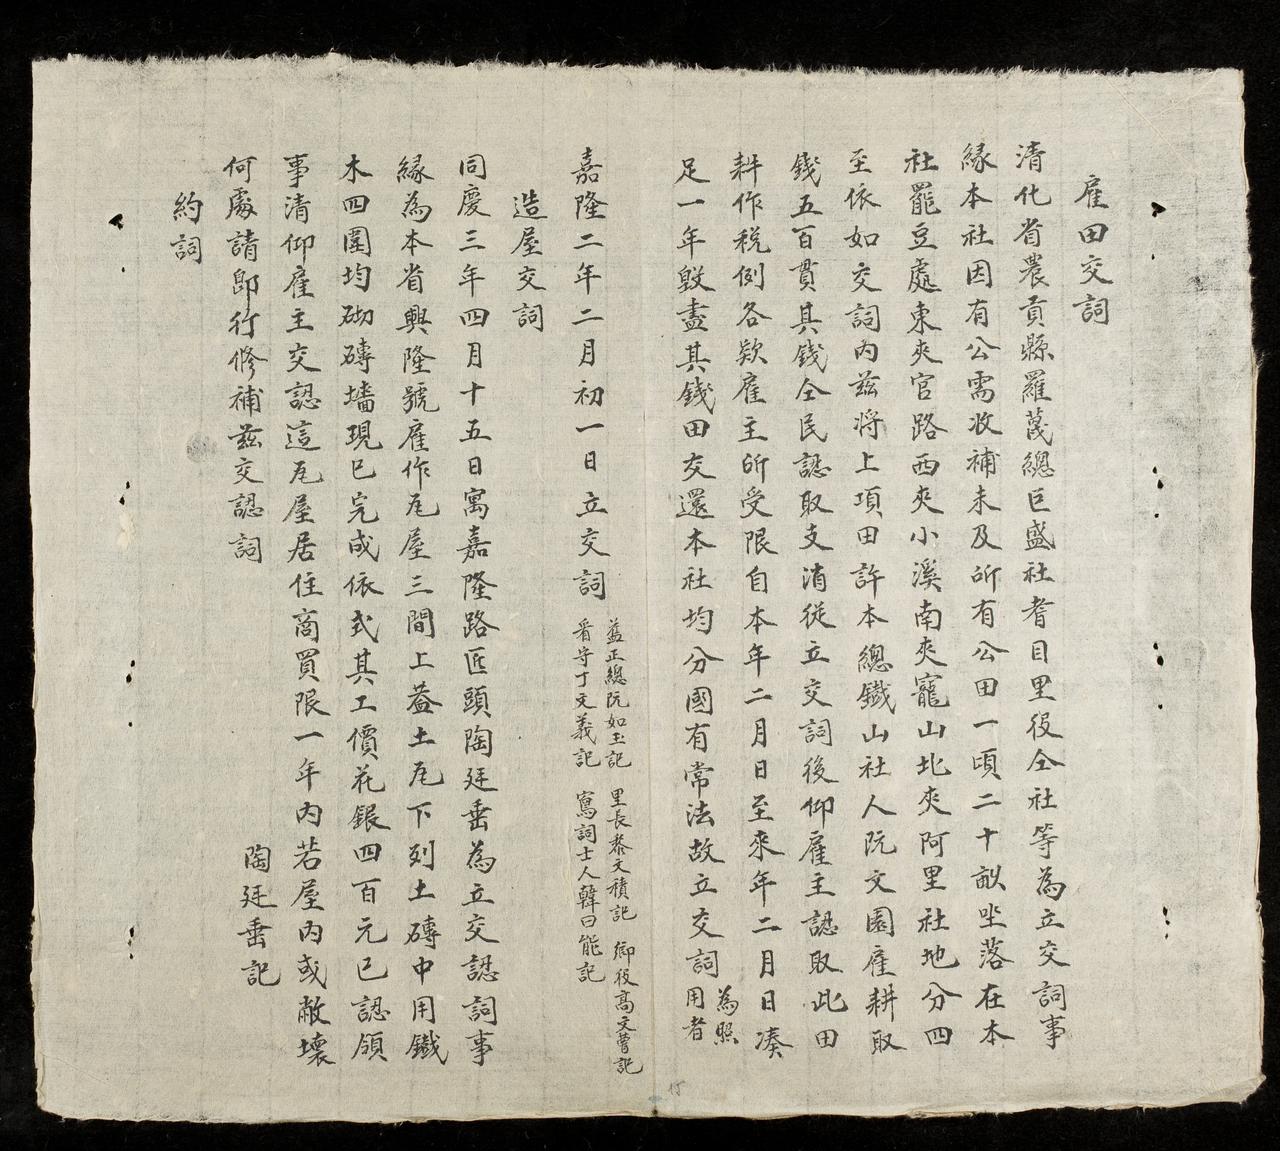 雇田交詞
清化省農貢縣羅茂總巨盛社耆目里役仝社等為立交詞事
緣本社因有公需收補未及所有公田一頃二十畝坐落在本
社罷豆處東夾官路西夾小溪南夾寵山北夾阿里社地分四
至依如交詞內茲將上項田許本總鐵山社人阮文園雇耕取
錢五百貫其錢仝民認取支消從立交詞後仰雇主認取此田
耕作稅例各欵雇主所受限自本年二月日至來年二月日湊
足一年殼盡其錢田交還本社均分國有常法故立交詞為照用者
嘉隆二年二月初一日立交詞
蓋正總阮如玉記 里長黎文積記 鄉役高文曹記
看守丁文義記 寫詞士人韓曰能記
造屋交詞
同慶三年四月十五日寓嘉隆路匠頭陶廷垂為立交認詞事
緣為本省興隆號雇作瓦屋三間上蓋土瓦下列土磚中用鐵
木四圍均砌磚墻現已完成依式其工價花銀四百元已認領
事清仰雇主交認這瓦屋居住商買限一年內若屋內或敝壞
何處請即行修補茲交認詞
陶廷垂記
約詞
15